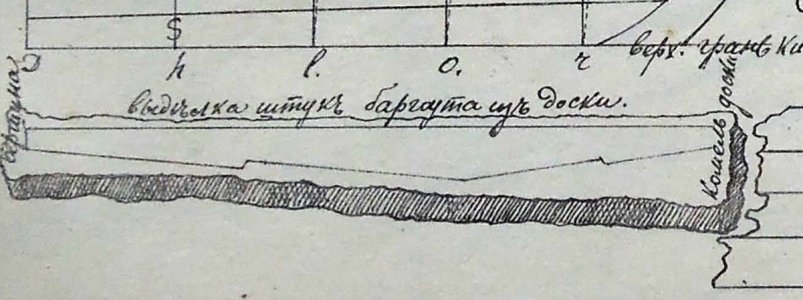 S
h l. o. r
верх. грань Ки
выдѣлка штукъ баргоута изъ доски.
Сердцина
Комель доски